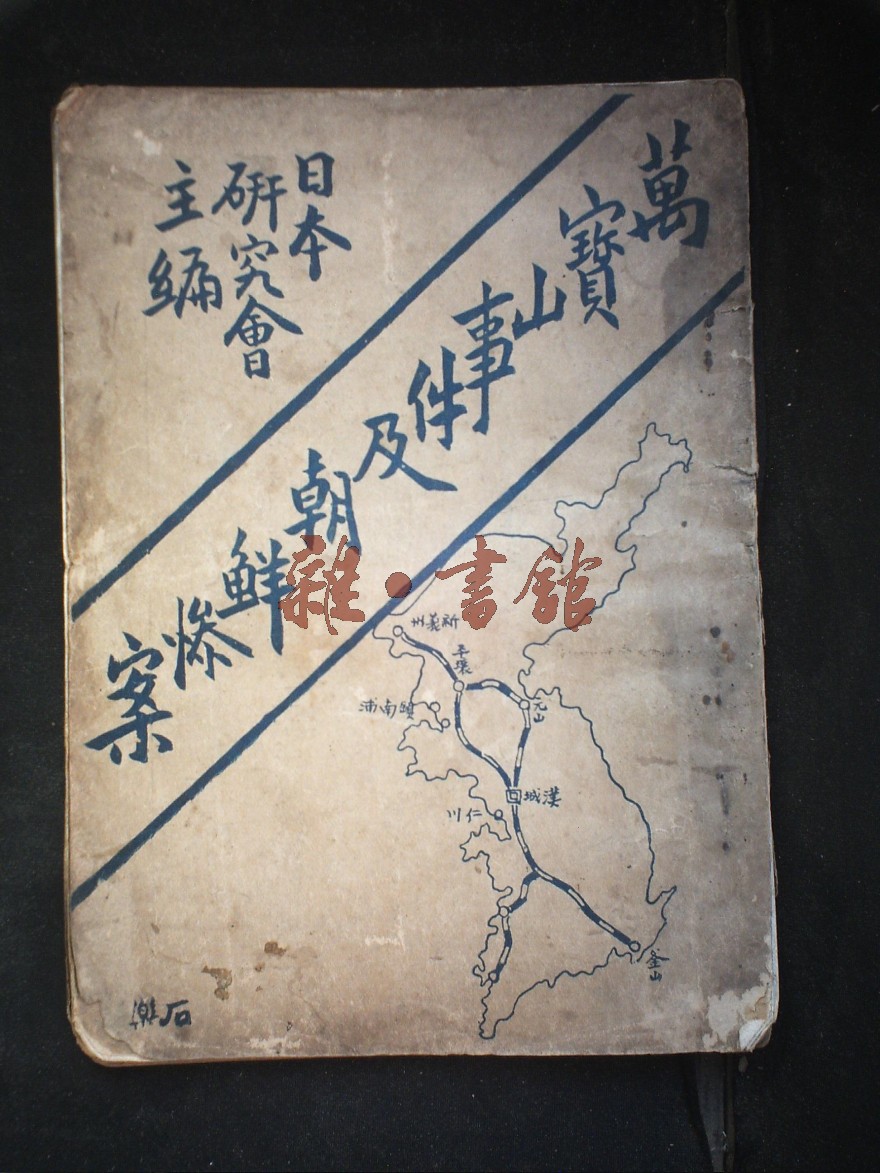 萬寶山事件及朝鮮慘案
日本
研究會
主編
雜·書館
新義州
平壤
鎮南浦
元山
漢城
仁川
釜山
石